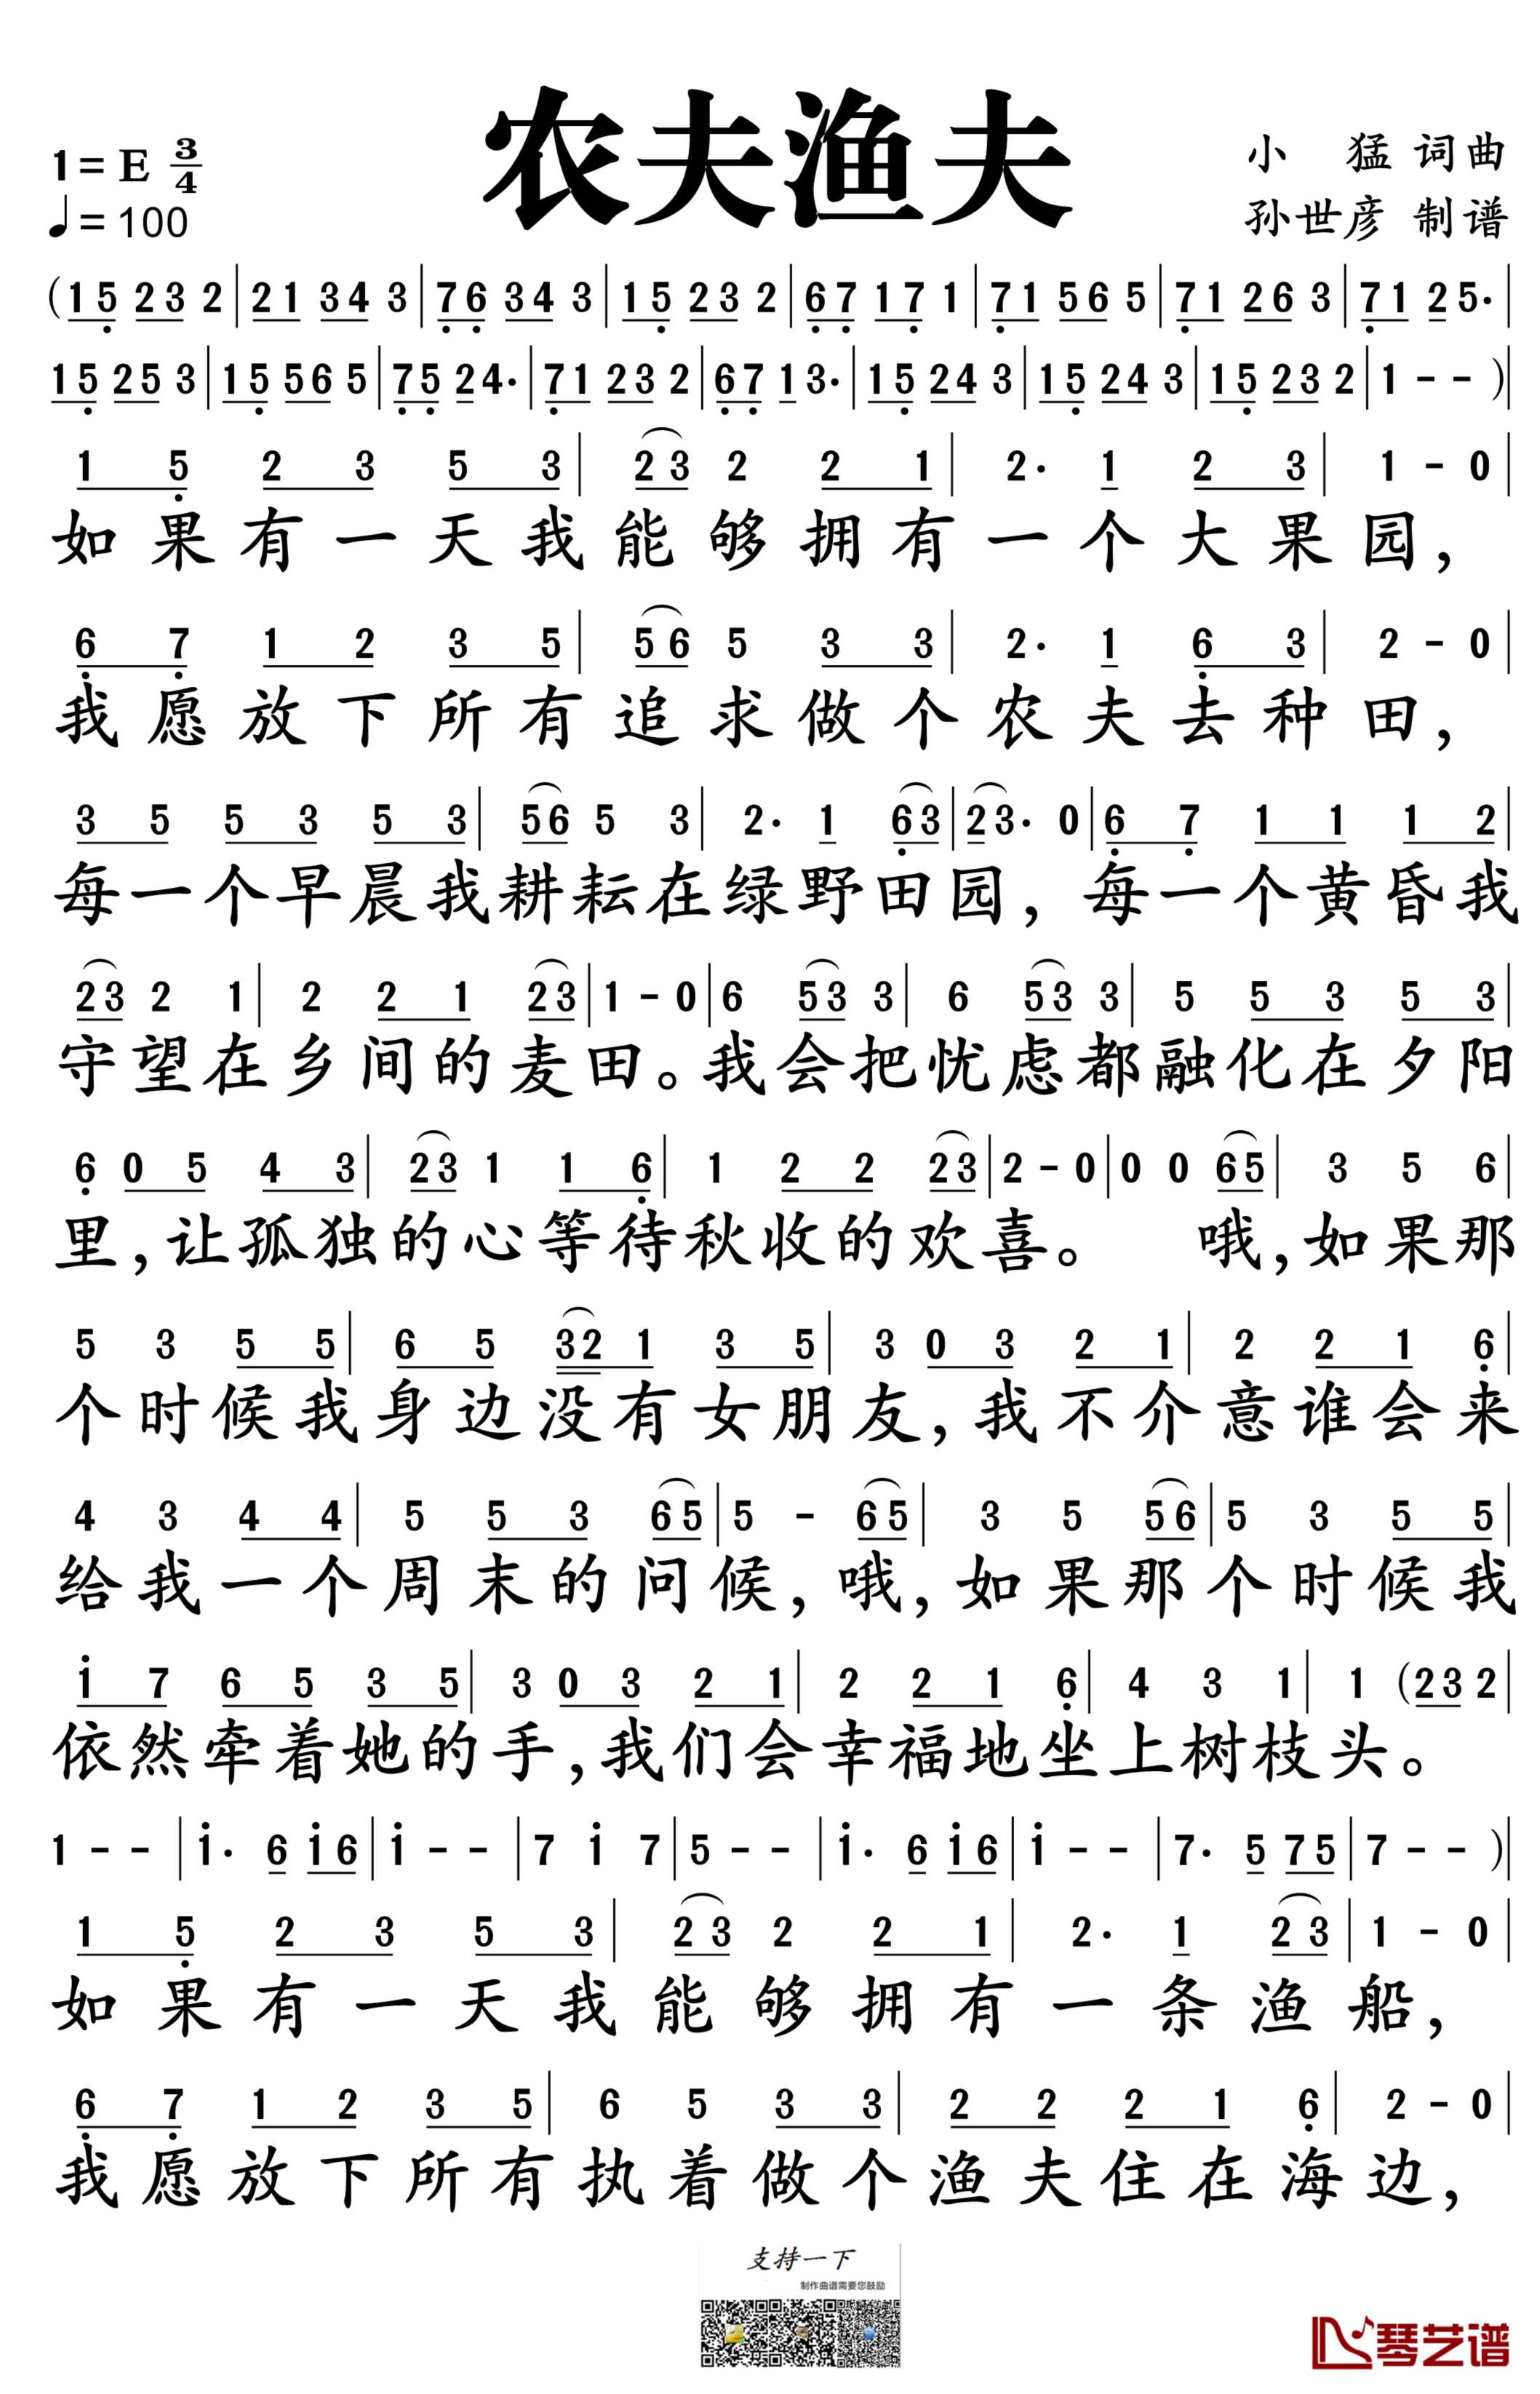 农夫渔夫
1=E 3/4
♩=100
小 猛 词曲
孙世彦 制谱
(15 23 2|21 34 3|76 34 3|15 23 2|67 17 1|71 56 5|71 26 3|71 25·|
15 25 3|15 56 5|75 24·|71 23 2|67 13·|15 24 3|15 24 3|15 23 2|1 - - )|
1 5 2 3 5 3|23 2 2 1|2· 1 2 3|1 - 0|
如果有一天我能够拥有一个大果园，
6 7 1 2 3 5|56 5 3 3|2· 1 6 3|2 - 0|
我愿放下所有追求做个农夫去种田，
3 5 5 3 5 3|56 5 3|2· 1 63|23· 0|6 7 1 1 1 2|
每一个早晨我耕耘在绿野田园，每一个黄昏我
23 2 1|2 2 1 23|1 - 0|6 53 3|6 53 3|5 5 3 5 3|
守望在乡间的麦田。我会把忧虑都融化在夕阳
6 0 5 4 3|23 1 1 6|1 2 2 23|2 - 0|0 0 65|3 5 6|
里，让孤独的心等待秋收的欢喜。 哦，如果那
5 3 5 5|6 5 32 1 3 5|3 0 3 2 1|2 2 1 6|
个时候我身边没有女朋友，我不介意谁会来
4 3 4 4|5 5 3 65|5 - 65|3 5 56|5 3 5 5|
给我一个周末的问候，哦，如果那个时候我
i 7 6 5 3 5|3 0 3 2 1|2 2 1 6|4 3 1|1 (23 2|
依然牵着她的手，我们会幸福地坐上树枝头。
1 - - |i· 6 i6|i - - |7 i 7|5 - - |i· 6 i6|i - - |7· 5 75|7 - - )|
1 5 2 3 5 3|23 2 2 1|2· 1 23|1 - 0|
如果有一天我能够拥有一条渔船，
6 7 1 2 3 5|6 5 3 3|2 2 2 1 6|2 - 0|
我愿放下所有执着做个渔夫住在海边，
支持一下
制作曲谱需要您鼓励
琴艺谱